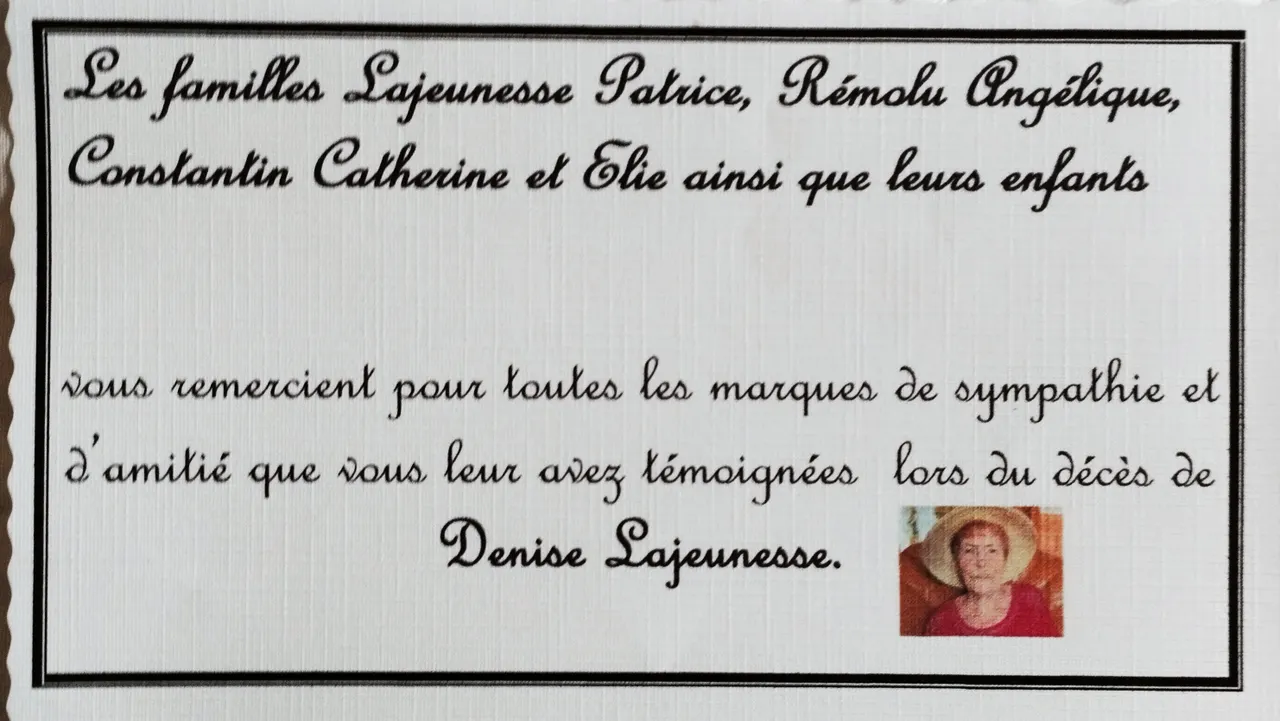 Les familles Lajeunesse Patrice, Rémolu Angélique,
Constantin Catherine et Elie ainsi que leurs enfants
vous remercient pour toutes les marques de sympathie et
d'amitié que vous leur avez témoignées lors du décès de
Denise Lajeunesse.